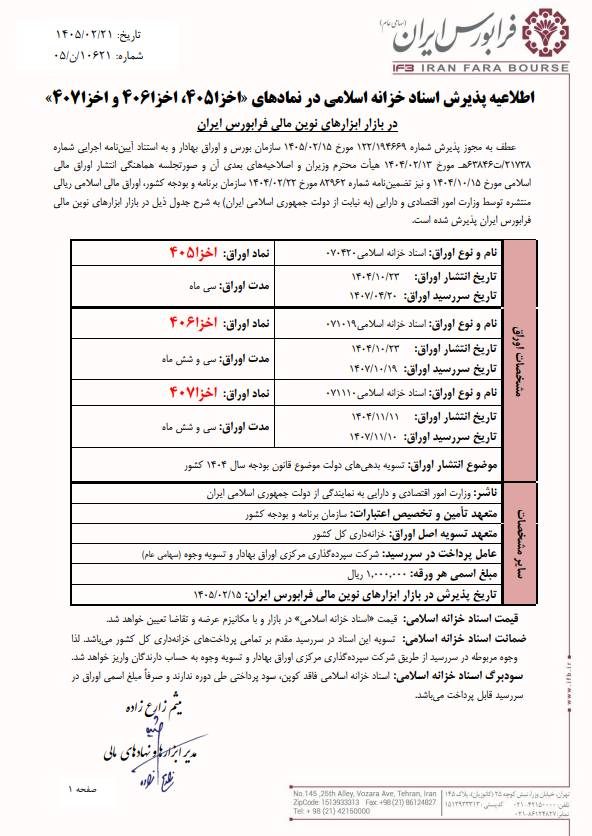 فرابورس ایران (سهامی عام)
IFB IRAN FARA BOURSE
تاریخ: ۱۴۰۵/۰۲/۲۱
شماره: ۱۰۶۲۱/ن/۰۵
اطلاعیه پذیرش اسناد خزانه اسلامی در نمادهای «اخزا۴۰۵، اخزا۴۰۶ و اخزا۴۰۷»
در بازار ابزارهای نوین مالی فرابورس ایران
عطف به مجوز پذیرش شماره ۱۲۲/۱۹۴۶۶۹ مورخ ۱۴۰۵/۰۲/۱۵ سازمان بورس و اوراق بهادار و به استناد آیین‌نامه اجرایی شماره
۲۱۷۳۸/ت۶۳۸۴۶هـ مورخ ۱۴۰۴/۰۲/۱۳ هیأت محترم وزیران و اصلاحیه‌های بعدی آن و صورتجلسه هماهنگی انتشار اوراق مالی
اسلامی مورخ ۱۴۰۴/۱۰/۱۵ و نیز تضمین‌نامه شماره ۸۲۹۶۲ مورخ ۱۴۰۴/۰۲/۲۲ سازمان برنامه و بودجه کشور، اوراق مالی اسلامی ریالی
منتشره توسط وزارت امور اقتصادی و دارایی (به نیابت از دولت جمهوری اسلامی ایران) به شرح جدول ذیل در بازار ابزارهای نوین مالی
فرابورس ایران پذیرش شده است.
مشخصات اوراق
نام و نوع اوراق: اسناد خزانه اسلامی۰۷۰۴۲۰ نماد اوراق: اخزا۴۰۵
تاریخ انتشار اوراق: ۱۴۰۴/۱۰/۲۳
تاریخ سررسید اوراق: ۱۴۰۷/۰۴/۲۰ مدت اوراق: سی ماه
نام و نوع اوراق: اسناد خزانه اسلامی۰۷۱۰۱۹ نماد اوراق: اخزا۴۰۶
تاریخ انتشار اوراق: ۱۴۰۴/۱۰/۲۳
تاریخ سررسید اوراق: ۱۴۰۷/۱۰/۱۹ مدت اوراق: سی و شش ماه
نام و نوع اوراق: اسناد خزانه اسلامی۰۷۱۱۱۰ نماد اوراق: اخزا۴۰۷
تاریخ انتشار اوراق: ۱۴۰۴/۱۱/۱۱
تاریخ سررسید اوراق: ۱۴۰۷/۱۱/۱۰ مدت اوراق: سی و شش ماه
موضوع انتشار اوراق: تسویه بدهی‌های دولت موضوع قانون بودجه سال ۱۴۰۴ کشور
سایر مشخصات
ناشر: وزارت امور اقتصادی و دارایی به نمایندگی از دولت جمهوری اسلامی ایران
متعهد تأمین و تخصیص اعتبارات: سازمان برنامه و بودجه کشور
متعهد تسویه اصل اوراق: خزانه‌داری کل کشور
عامل پرداخت در سررسید: شرکت سپرده‌گذاری مرکزی اوراق بهادار و تسویه وجوه (سهامی عام)
مبلغ اسمی هر ورقه: ۱,۰۰۰,۰۰۰ ریال
تاریخ پذیرش در بازار ابزارهای نوین مالی فرابورس ایران: ۱۴۰۵/۰۲/۱۵
قیمت اسناد خزانه اسلامی: قیمت «اسناد خزانه اسلامی» در بازار و با مکانیزم عرضه و تقاضا تعیین خواهد شد.
ضمانت اسناد خزانه اسلامی: تسویه این اسناد در سررسید مقدم بر تمامی پرداخت‌های خزانه‌داری کل کشور می‌باشد. لذا
وجوه مربوطه در سررسید از طریق شرکت سپرده‌گذاری مرکزی اوراق بهادار و تسویه وجوه به حساب دارندگان واریز خواهد شد.
سودبرگ اسناد خزانه اسلامی: اسناد خزانه اسلامی فاقد کوپن، سود پرداختی طی دوره ندارند و صرفاً مبلغ اسمی اوراق در
سررسید قابل پرداخت می‌باشد.
میثم زارع زاده
مدیر ابزارها و نهادهای مالی
صفحه ۱
No.145 ,25th Alley, Vozara Ave, Tehran, Iran
ZipCode: 1513933313 Fax:+98 (21) 86124827
Tel: + 98 (21) 42150000
تهران، خیابان وزرا، نبش کوچه ۲۵ (کاشیان)، پلاک ۱۴۵
تلفن: ۴۲۱۵۰۰۰۰-۰۲۱ کدپستی: ۱۵۱۳۹۳۳۳۱۳
نمابر: ۸۶۱۲۴۸۲۷-۰۲۱
www.ifb.ir